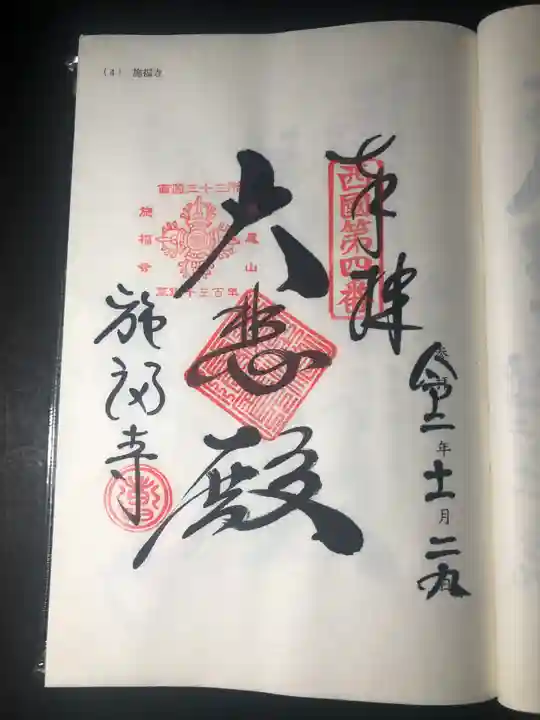 （4） 施福寺
奉拝
西國第四番
参拝
令二年十一月二九日
大悲殿
西国三十三所
槇尾山
施福寺
草創千三百年
施福寺